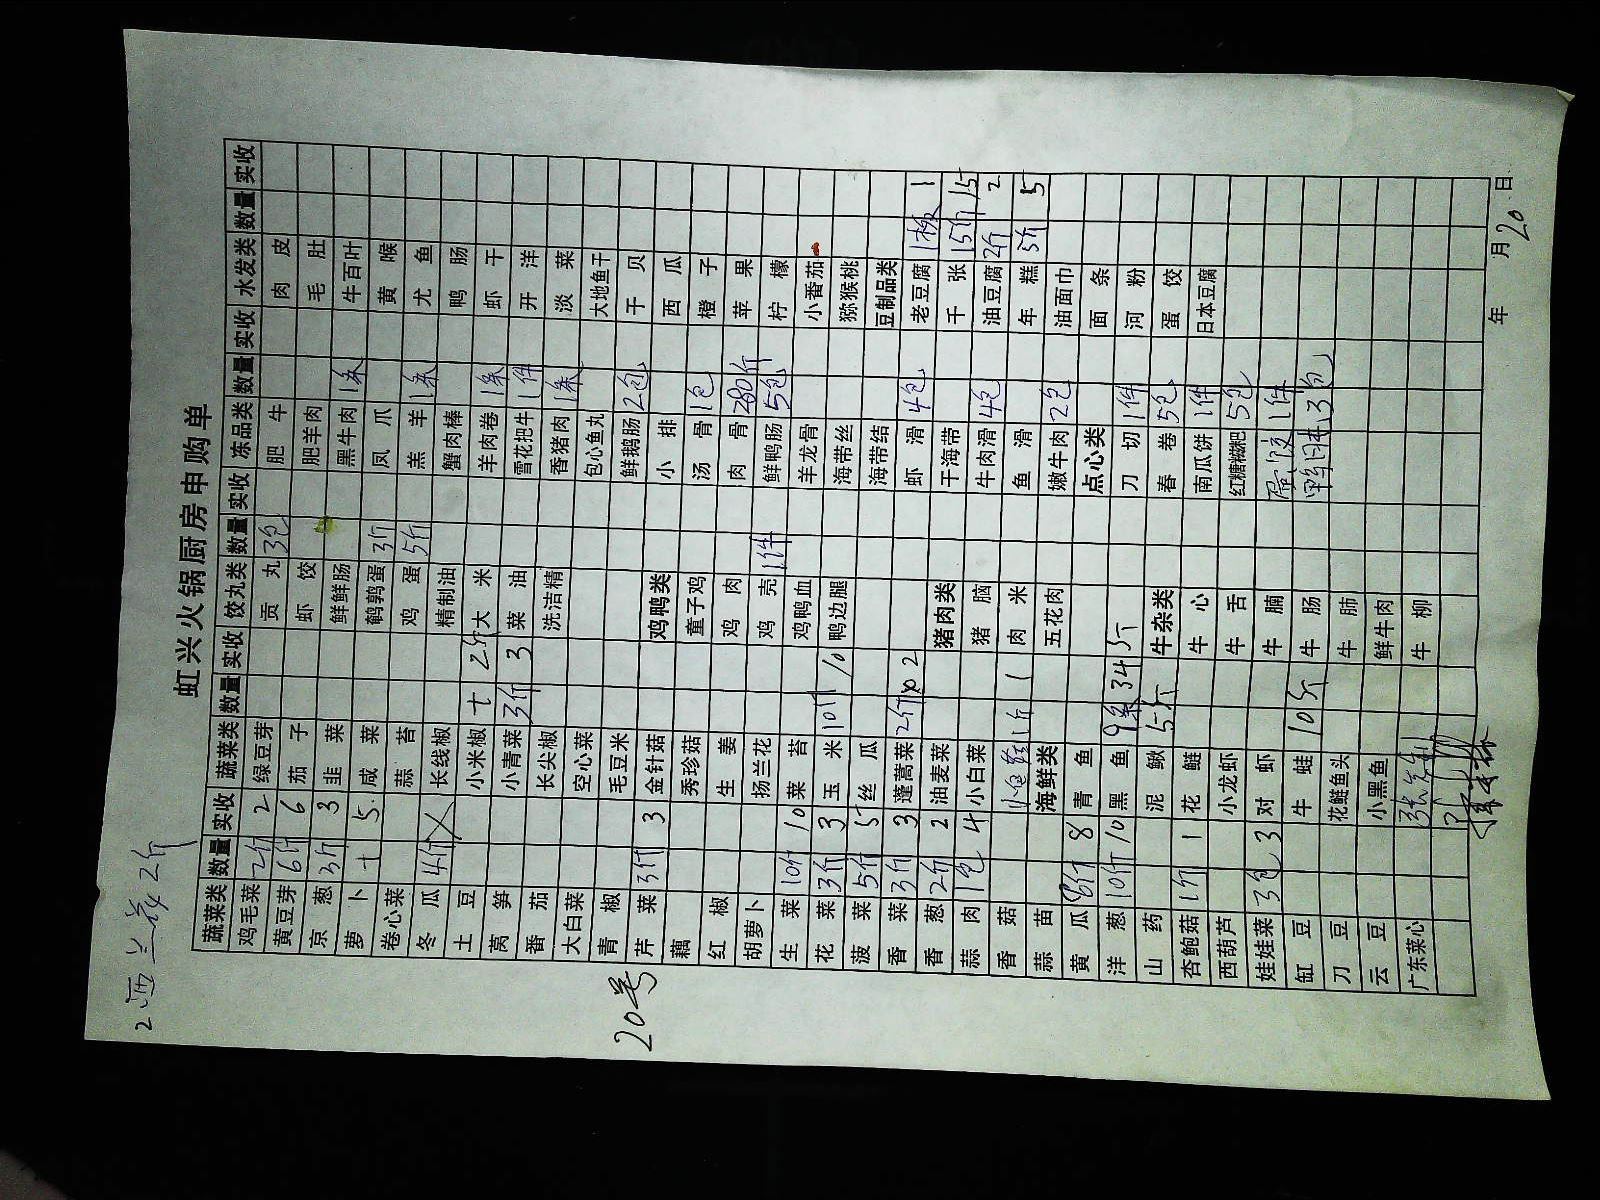 2 西兰花 2斤
虹兴火锅厨房申购单
蔬菜类 数量 实收 蔬菜类 数量 实收 饺丸类 数量 实收 冻品类 数量 实收 水发类 数量 实收
鸡毛菜 2斤 2 绿豆芽 贡丸 3包 肥牛 肉皮
黄豆芽 6斤 6 茄子 虾饺 肥羊肉 毛肚
京葱 3斤 3 韭菜 鲜鲜肠 黑牛肉 1条 牛百叶
萝卜 5 咸菜 鹌鹑蛋 3斤 凤爪 黄喉
卷心菜 蒜苔 鸡蛋 5斤 羔羊 1条 尤鱼
冬瓜 4斤 长线椒 精制油 蟹肉棒 鸭肠
土豆 小米椒 大米 羊肉卷 1条 虾干
莴笋 小青菜 3斤 3 菜油 雪花把牛 1件 开洋
番茄 长尖椒 洗洁精 香猪肉 1条 淡菜
大白菜 空心菜 包心鱼丸 大地鱼干
青椒 毛豆米 鲜鹅肠 2包 干贝
芹菜 3斤 3 金针菇 鸡鸭类 小排 西瓜
藕 秀珍菇 童子鸡 汤骨 1包 橙子
红椒 生姜 鸡肉 肉骨 280斤 苹果
胡萝卜 扬兰花 鸡壳 1件 鲜鸭肠 5包 柠檬
生菜 10斤 10 菜苔 鸡鸭血 羊龙骨 小番茄
花菜 3斤 3 玉米 10斤 10 鸭边腿 海带丝 猕猴桃
菠菜 5斤 5 丝瓜 海带结 豆制品类
香菜 3斤 3 蓬蒿菜 2斤 2 虾滑 4包 老豆腐 1板 1
香葱 2斤 2 油麦菜 猪肉类 干海带 千张 15斤 15
蒜肉 1包 4 小白菜 猪脑 牛肉滑 4包 油豆腐 2斤 2
香菇 1斤 1 肉米 鱼滑 年糕 5斤 5
蒜苗 海鲜类 五花肉 嫩牛肉 2包 油面巾
黄瓜 8斤 8 青鱼 点心类 面条
洋葱 10斤 10 黑鱼 9条 34斤 刀切 1件 河粉
山药 泥鳅 5斤 牛杂类 春卷 5包 蛋饺
杏鲍菇 1斤 1 花鲢 牛心 南瓜饼 1件 日本豆腐
西葫芦 小龙虾 牛舌 红糖糍粑 5包
娃娃菜 3包 3 对虾 牛腩 1件
缸豆 牛蛙 10斤 牛肠 3包
刀豆 花鲢鱼头 牛肺
云豆 小黑鱼 鲜牛肉
广东菜心 牛柳
20号
年 月 20 日